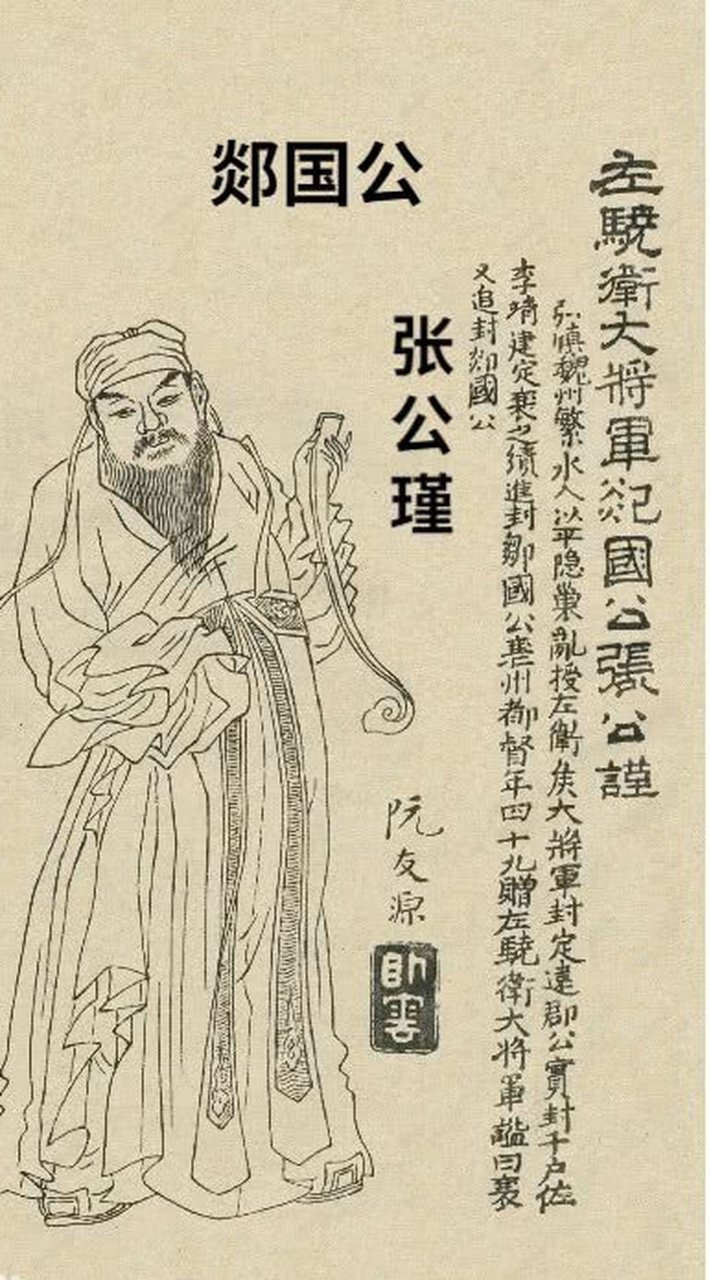 郯国公
张公瑾
左驍衛大將軍郯國公張公謹
弘慎魏州繁水人以平隐巢亂授左衛矦大將軍封定遠郡公實封千户佐
李靖建定襄之績進封鄒國公襄州都督年四十九贈左驍衛大將軍諡曰襄
又追封郯國公
阮友源